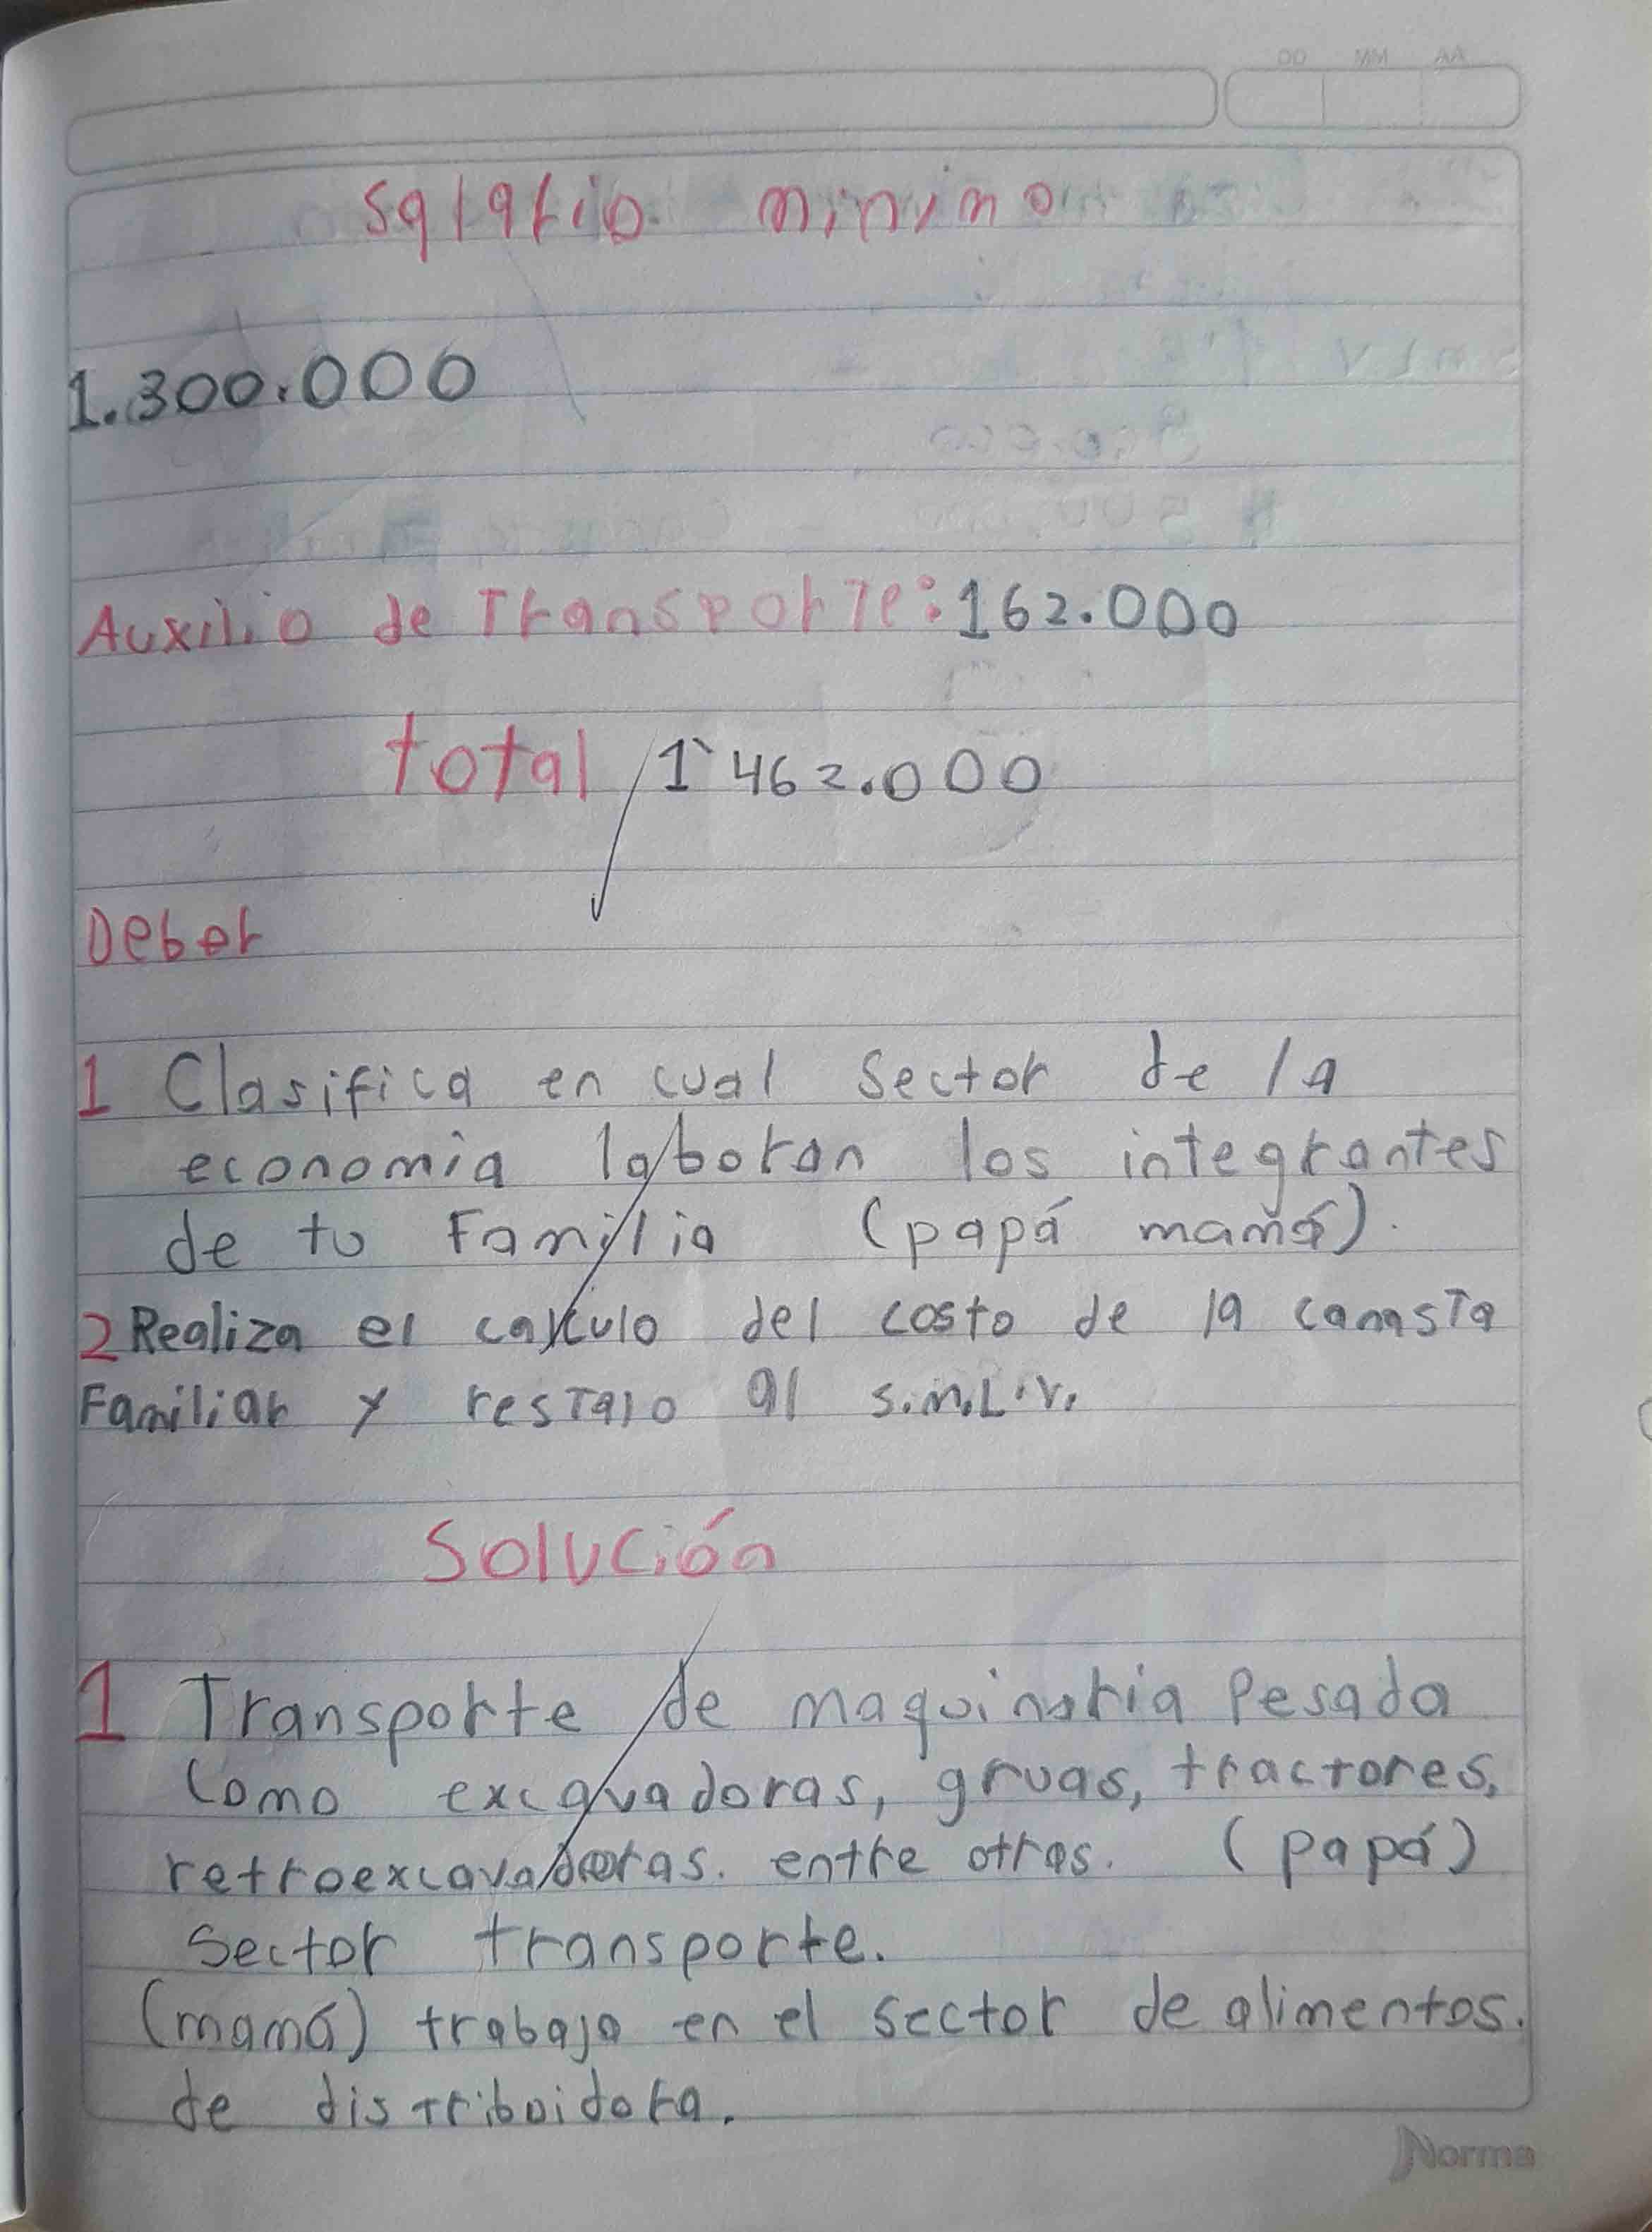 AA MM DD
Salario minimo
1.300.000
Auxilio de Transporte: 162.000
total 1'462.000
Deber
1 Clasifica en cual sector de la
economia laboran los integrantes
de tu Familia (papá mamá).
2 Realiza el calculo del costo de la canasta
Familiar y restalo al s.m.L.v.
Solución
1 Transporte de maquinaria Pesada
como excavadoras, gruas, tractores,
retroexcavadoras. entre otras. (papá)
Sector transporte.
(mamá) trabaja en el sector de alimentos.
de distribuidora.
Norma